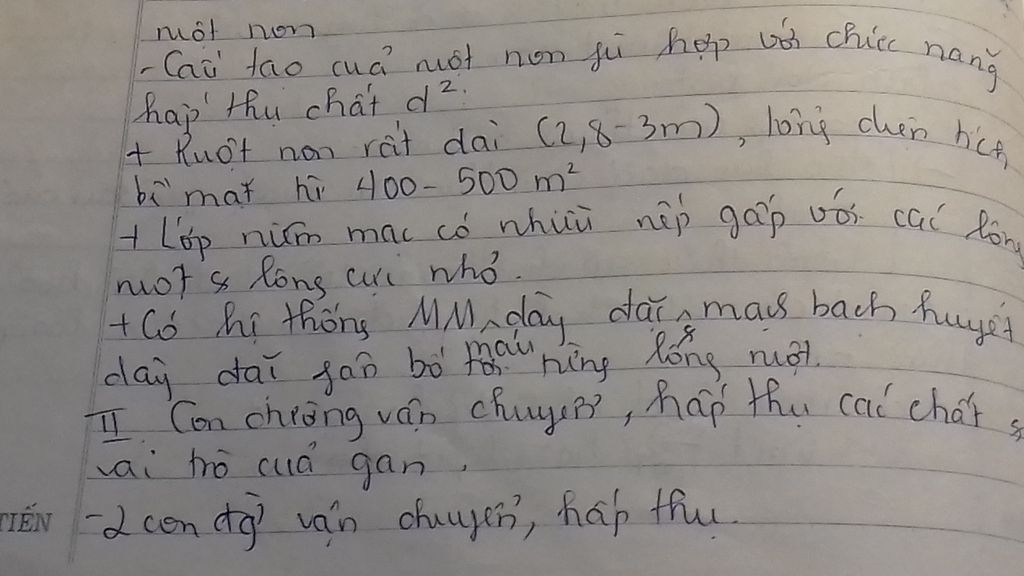 ruột non
- Cấu tạo của ruột non phù hợp với chức năng
hấp thụ chất d²:
+ Ruột non rất dài (2,8-3m), tổng diện tích
bề mặt từ 400-500 m²
+ Lớp niêm mạc có nhiều nếp gấp với các lông
ruột & lông cực nhỏ.
+ Có hệ thống MM máu dày đặc & mạch bạch huyết
dày đặc phân bố tới từng lông ruột.
II. Con đường vận chuyển, hấp thụ các chất &
vai trò của gan.
- 2 con đg vận chuyển, hấp thụ.
TIẾN